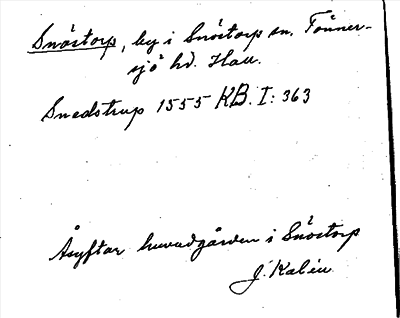 Snöstorp, by i Snöstorp sn. Tönner-
sjö hd. Hall.
Snedstrup 1555 KB. I: 363
Åsyftar huvudgården i Snöstorp
J. Kalén